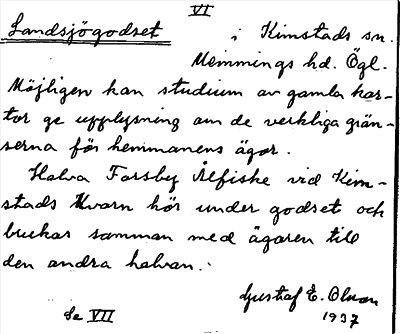 VI
Landsjögodset i Kimstads sn.
Memmings hd. Ögl.
Möjligen kan studium av gamla kar-
tor ge upplysning om de verkliga grän-
serna för hemmanens ägor.
Halva Forsby Ålfiske vid Kim-
stads Kvarn hör under godset och
brukas samman med ägaren till
den andra halvan.
Gustaf E. Olson
Se VII 1937